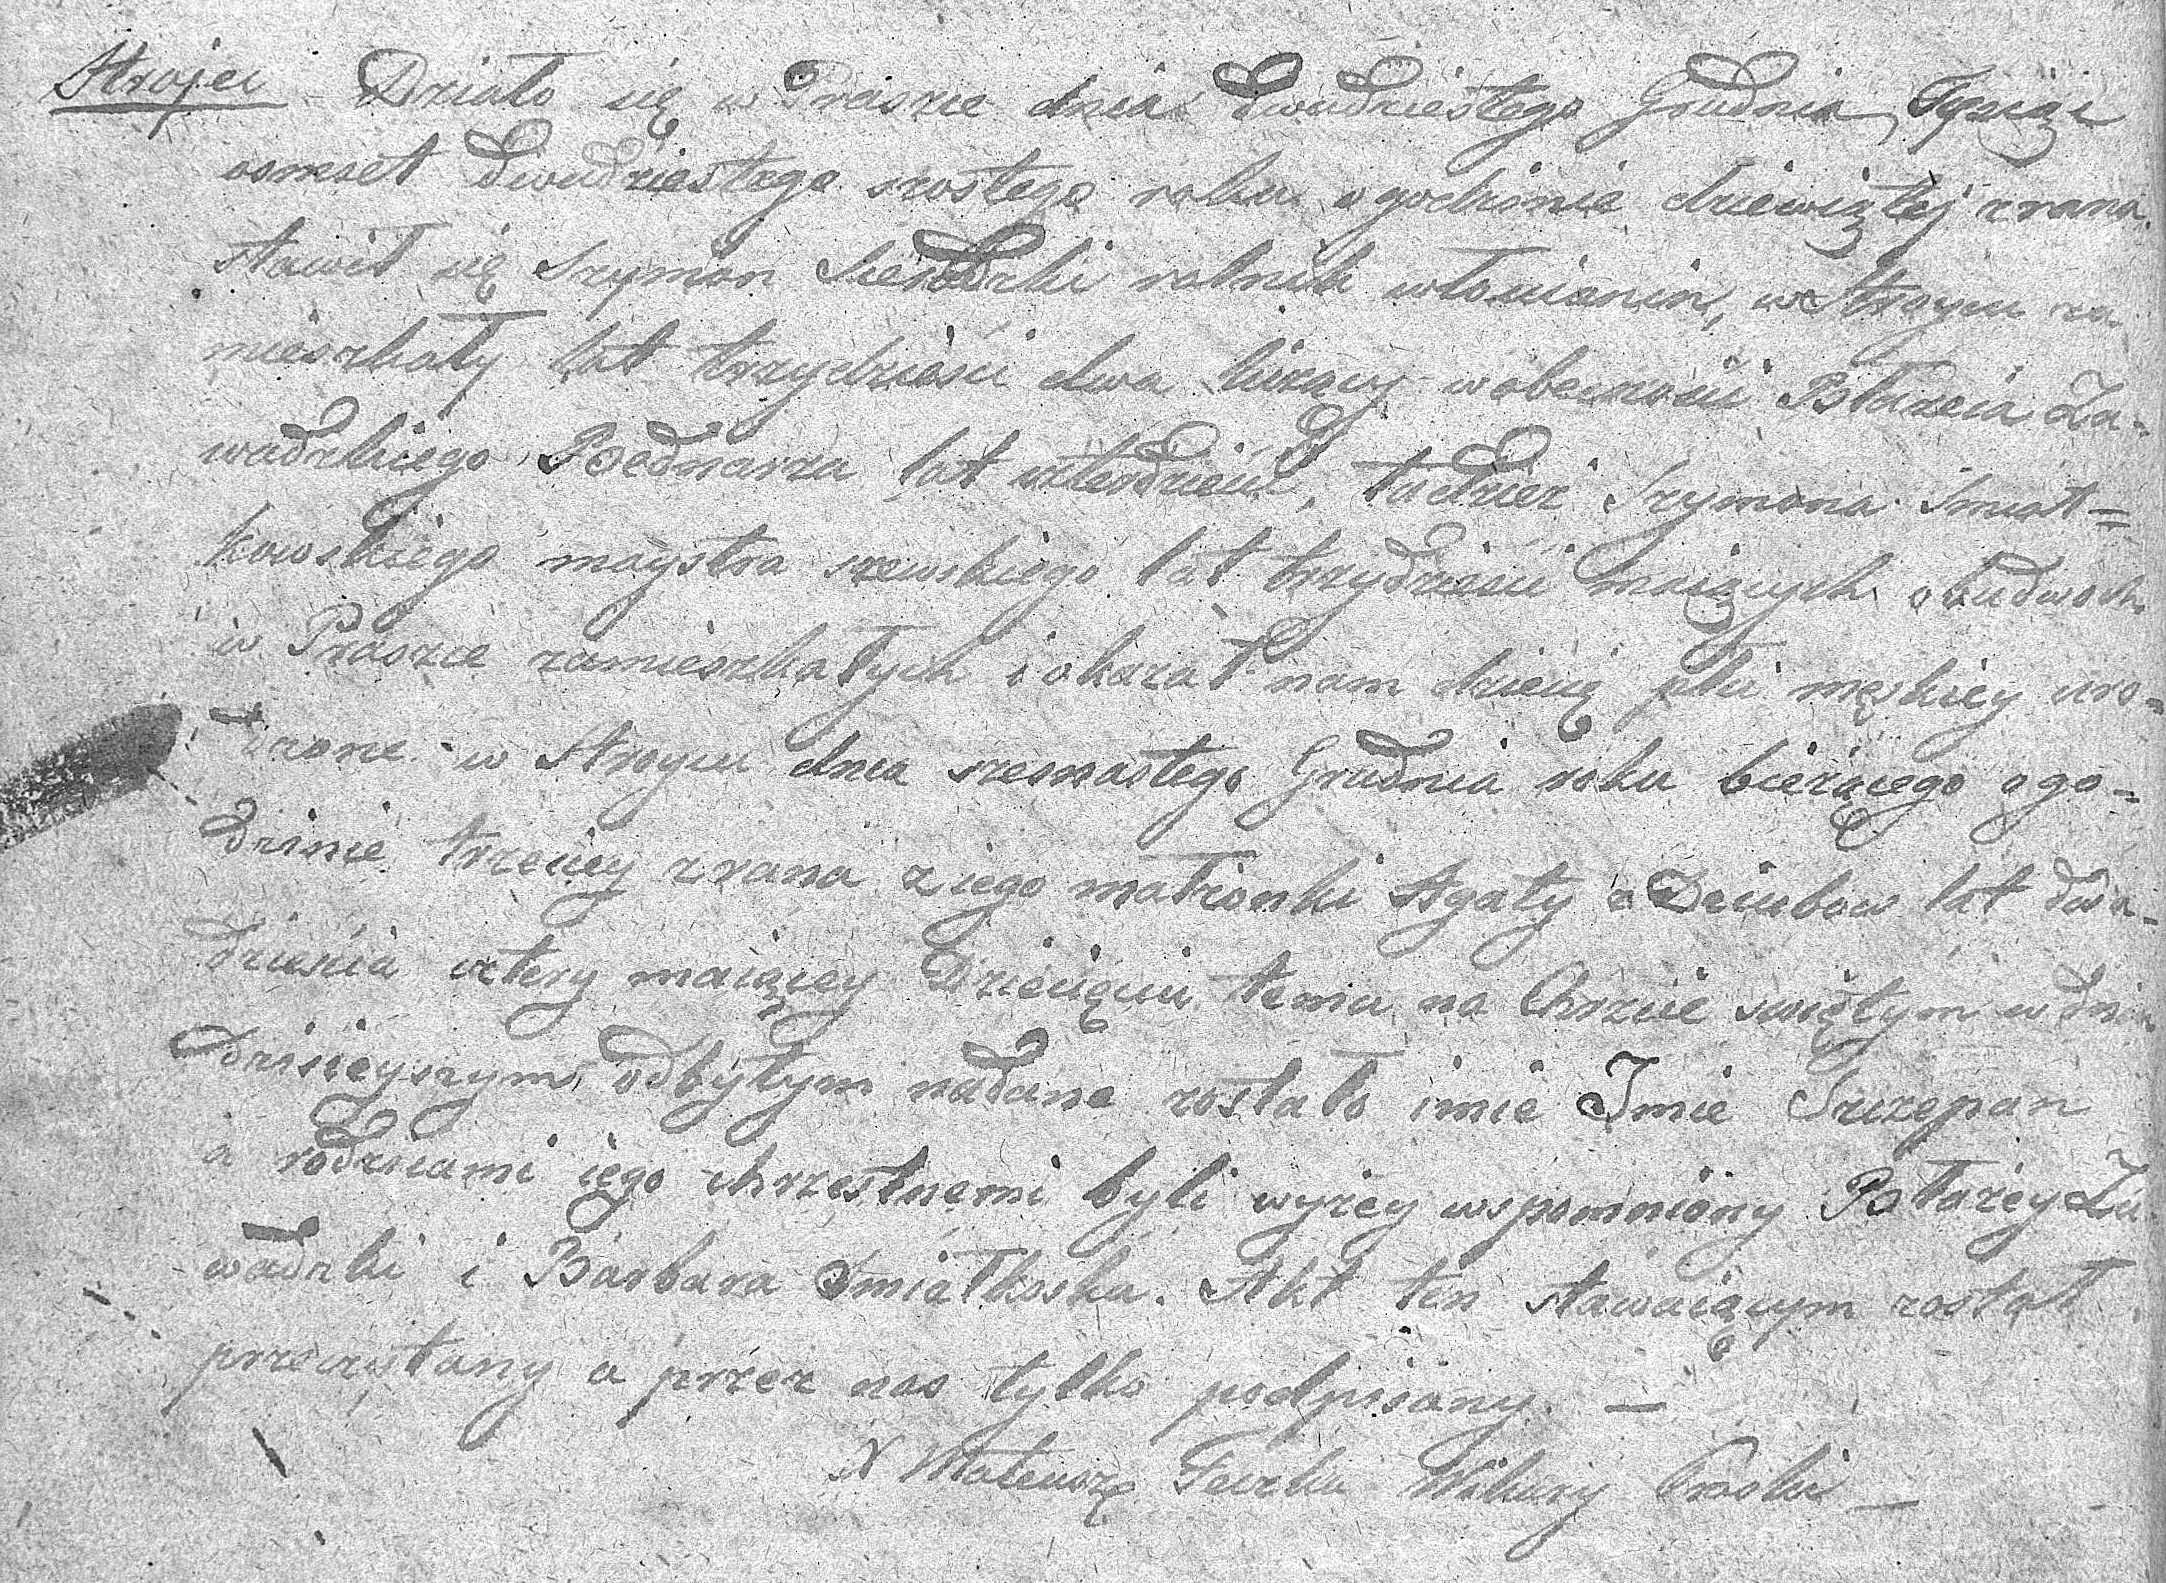 Stroiec Działo się w Praszce dnia dwudziestego Grudnia Tysiąc
osmset dwudziestego szostego roku o godzinie dziewiątej z rana
stawił się Szymon Sieradzki rolnik włoscianin, w Stroycu za
mieszkały lat trzydzieści dwa liczący w obecności Błażeia Za-
wadzkiego Bednarza lat czterdzieści, tudzież Szymona Smiat=
kowskiego maystra szewskiego lat trzydzieści maiących obudwoch
w Praszce zamieszkałych i okazał nam dziecię płci męskiey uro=
dzone w Stroycu dnia szesnastego Grudnia roku bieżącego o go=
dzinie trzeciey z rana z iego małżonki Agaty z Dziubow lat dwa-
dzieścia cztery maiącey Dziecięciu temu na Chrzcie swiętym w dniu
dzisieyszym odbytym nadane zostało imie Imie Szczepan
a rodzicami iego chrzestnemi byli wyżey wspomniony Błażey Za
wadzki i Barbara Smiałkoska. Akt ten stawaiącym został
przeczytany a przez nas tylko podpisany. —
X Mateusz Wikary Praski —